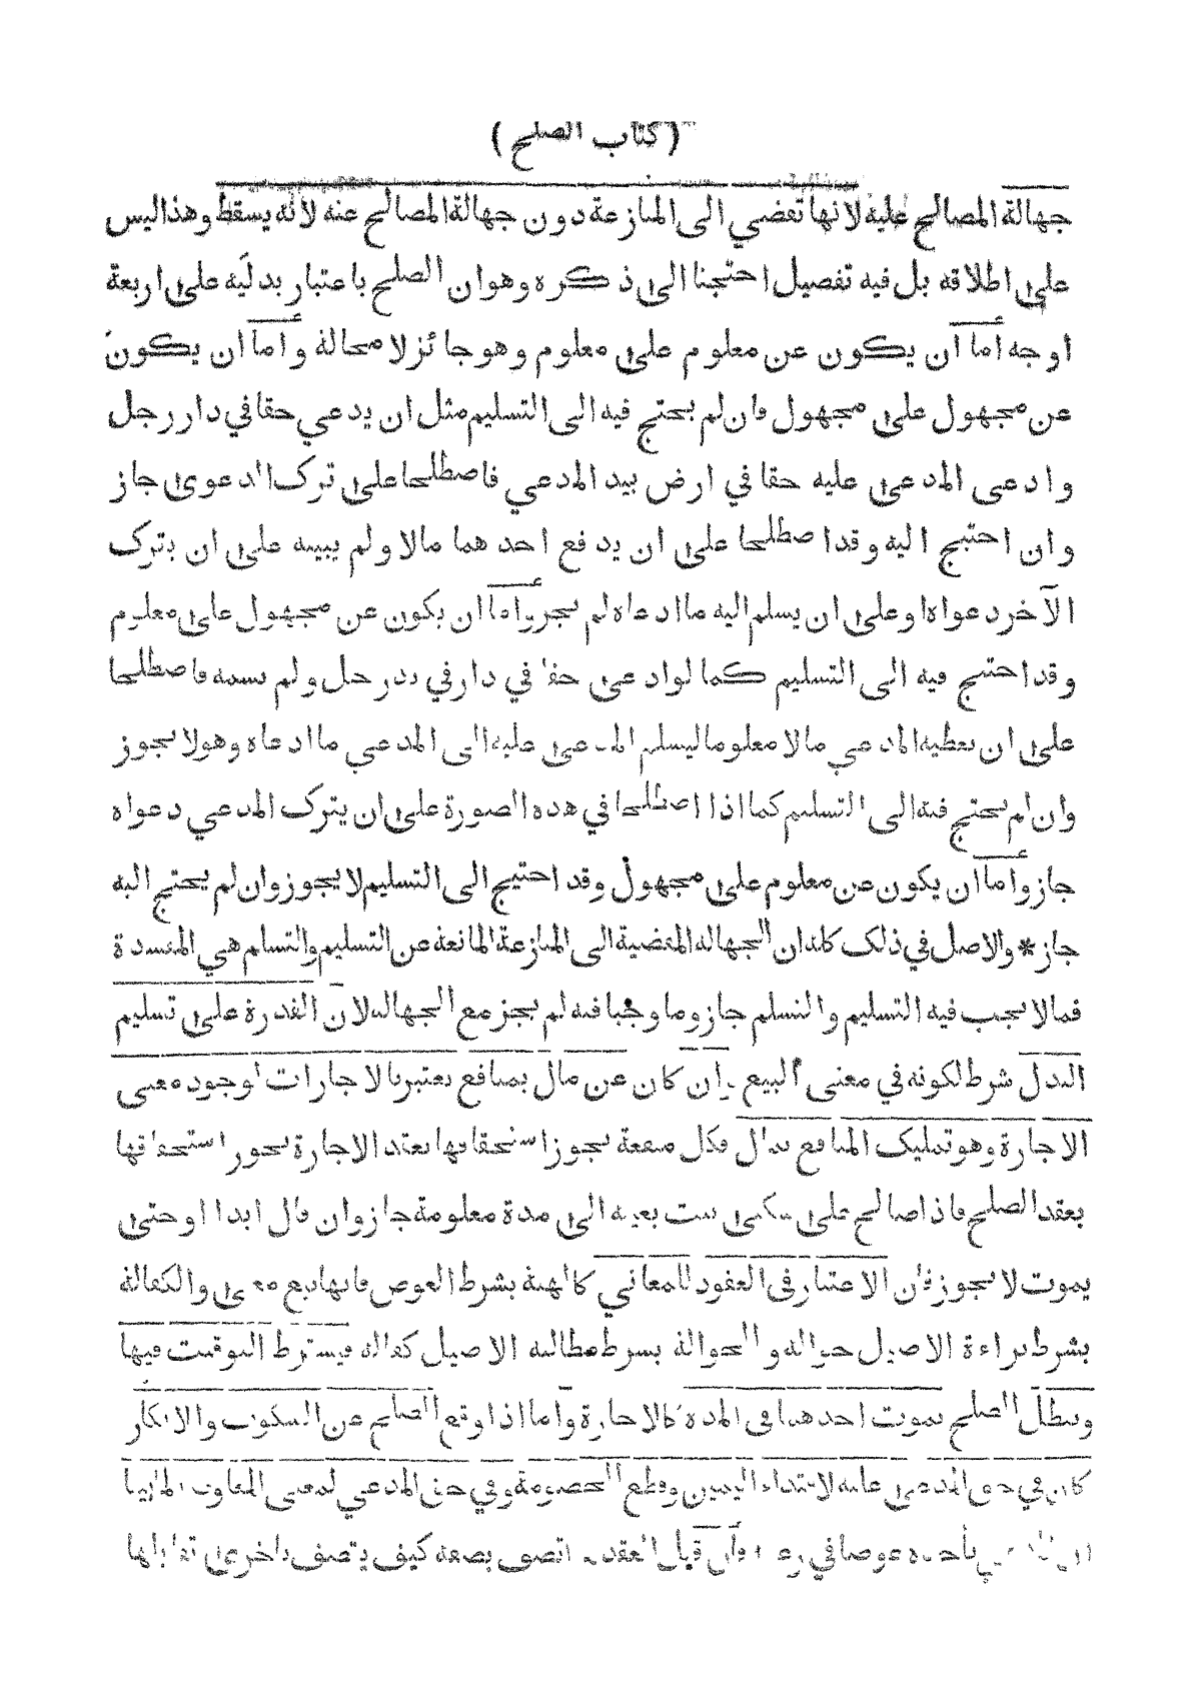 (كتاب الصلح)
جهالة المصالح عليه لانها تفضي الى المنازعة دون جهالة المصالح عنه لانه يسقط وهذا ليس
على اطلاقه بل فيه تفصيل احتجنا الى ذكره وهو ان الصلح باعتبار بدليه على اربعة
اوجه أما أن يكون عن معلوم على معلوم وهو جائز لا محالة وأما أن يكون
عن مجهول على مجهول فان لم يحتج فيه الى التسليم مثل ان يدعي حقا في دار رجل
وادعى المدعى عليه حقا في ارض بيد المدعي فاصطلحا على ترك الدعوى جاز
وان احتيج اليه وقد اصطلحا على ان يدفع احدهما مالا ولم يبينه على ان يترك
الآخر دعواه او على ان يسلم اليه ما ادعاه لم يجز وأما ان يكون عن مجهول على معلوم
وقد احتيج فيه الى التسليم كما لو ادعى حقا في دار في يد رجل ولم يسمه فاصطلحا
على ان يعطيه المدعي مالا معلوما ليسلم المدعى عليه الى المدعي ما ادعاه وهو لا يجوز
وان لم يحتج فيه الى التسليم كما اذا اصطلحا في هذه الصورة على ان يترك المدعي دعواه
جاز وأما أن يكون عن معلوم على مجهول وقد احتيج الى التسليم لا يجوز وان لم يحتج اليه
جاز * والاصل في ذلك كله ان الجهالة المفضية الى المنازعة المانعة عن التسليم والتسلم هي المفسدة
فما لا يجب فيه التسليم والتسلم جاز وما وجبا فيه لم يجز مع الجهالة لان القدرة على تسليم
البدل شرط لكونه في معنى البيع وان كان عن مال بمنافع يعتبر بالاجارات لوجود معنى
الاجارة وهو تمليك المنافع بمال فكل منفعة يجوز استحقاقها بعقد الاجارة يجوز استحقاقها
بعقد الصلح فاذا صالح على سكنى بيت بعينه الى مدة معلومة جاز وان قال ابدا او حتى
يموت لا يجوز فان الاعتبار في العقود للمعاني كالهبة بشرط العوض فانها بيع معنى والكفالة
بشرط براءة الاصيل حوالة والحوالة بشرط مطالبة الاصيل كفالة فيشترط التوقيت فيها
ويبطل الصلح بموت احدهما في المدة كالاجارة وأما اذا وقع الصلح عن السكوت والانكار
كان في حق المدعى عليه لافتداء اليمين وقطع الخصومة وفي حق المدعي لمعنى المعاوضة لما بينا
فأن قيل العقد اتصف بصفة كيف يتصف باخرى تقابلها